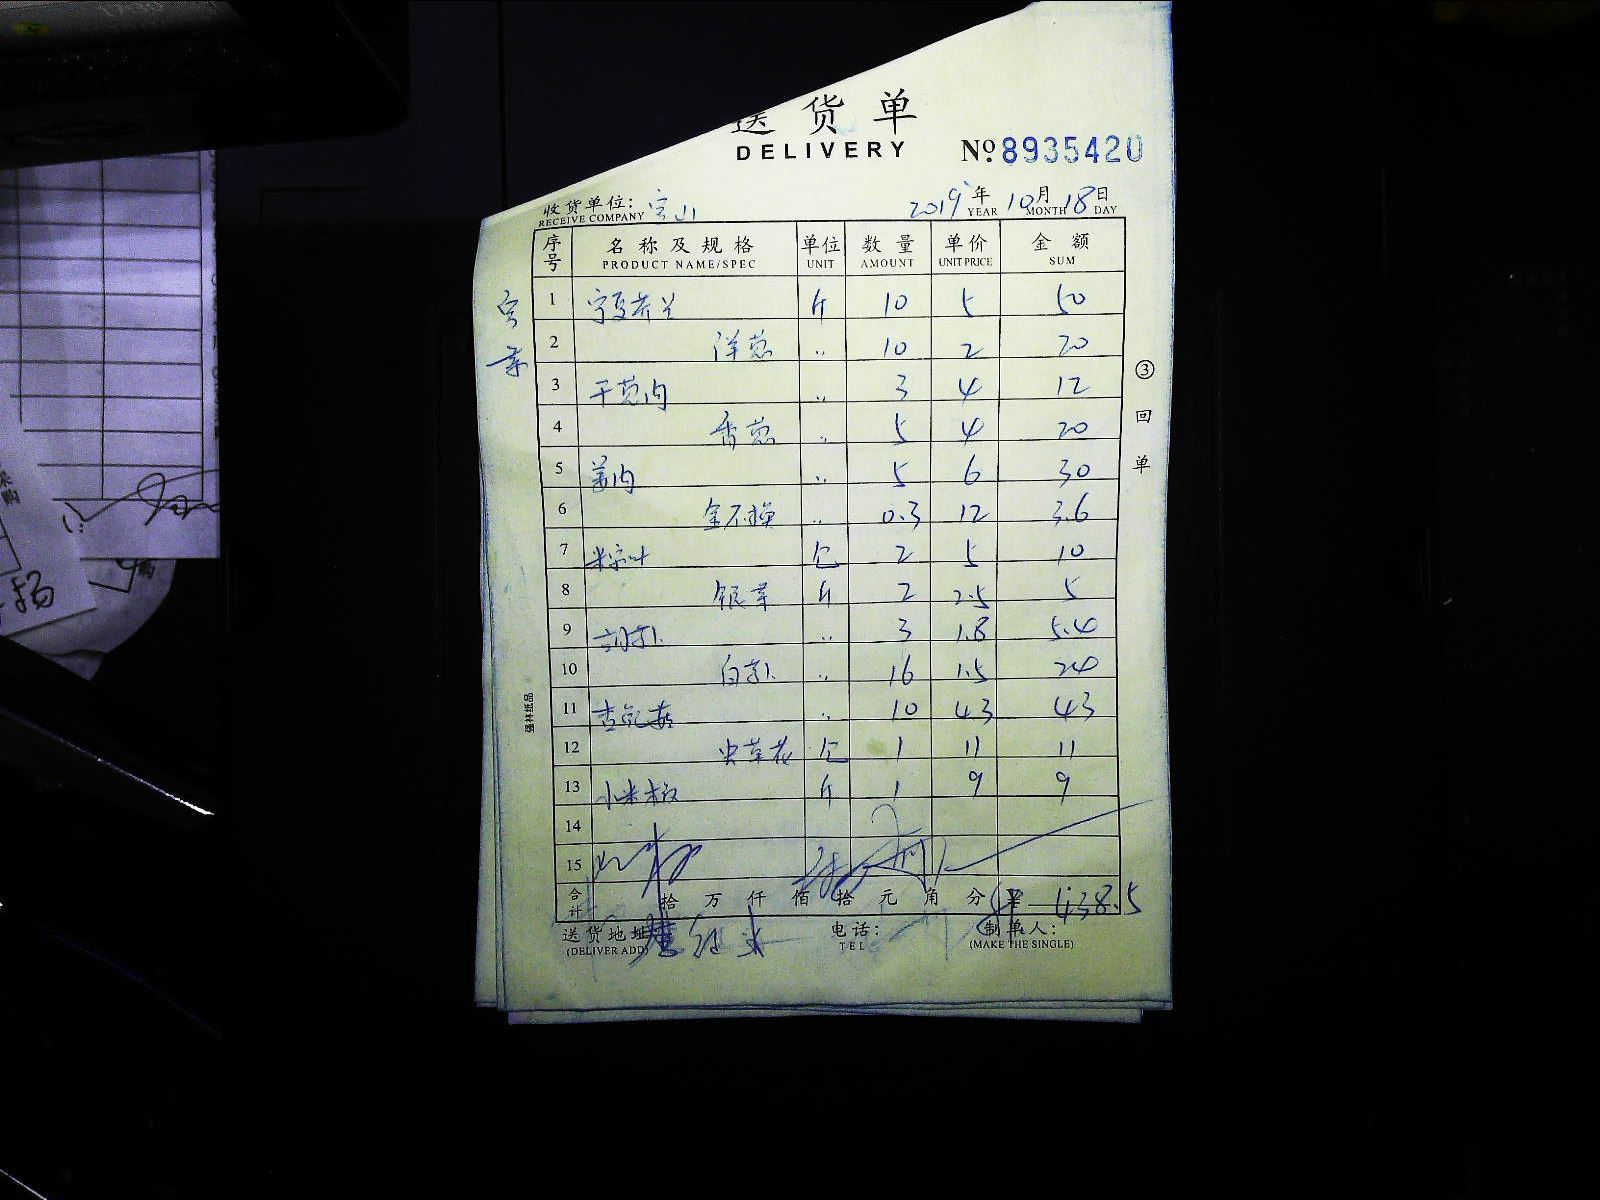 送货单
DELIVERY
№ 8935420
收货单位: 宝山
RECEIVE COMPANY
2019年 10月 18日
YEAR MONTH DAY
序号 名称及规格 单位 数量 单价 金额
PRODUCT NAME/SPEC UNIT AMOUNT UNIT PRICE SUM
1 宁夏芥兰 斤 10 5 50
2 洋葱 〃 10 2 20
3 干葱肉 〃 3 4 12
4 香葱 〃 5 4 20
5 姜肉 〃 5 6 30
6 金不换 〃 0.3 12 3.6
7 包 2 5 10
8 银芽 斤 2 2.5 5
9 〃 3 1.8 5.4
10 白卜 〃 16 1.5 24
11 杏鲍菇 〃 10 43 43
12 虫草花 包 1 11 11
13 小米椒 斤 1 9 9
14
15
合计 拾 万 仟 佰 拾 元 角 分 ¥ 438.5
送货地址: 电话: 制单人:
(DELIVER ADD) TEL (MAKE THE SINGLE)
③回单
强林纸品